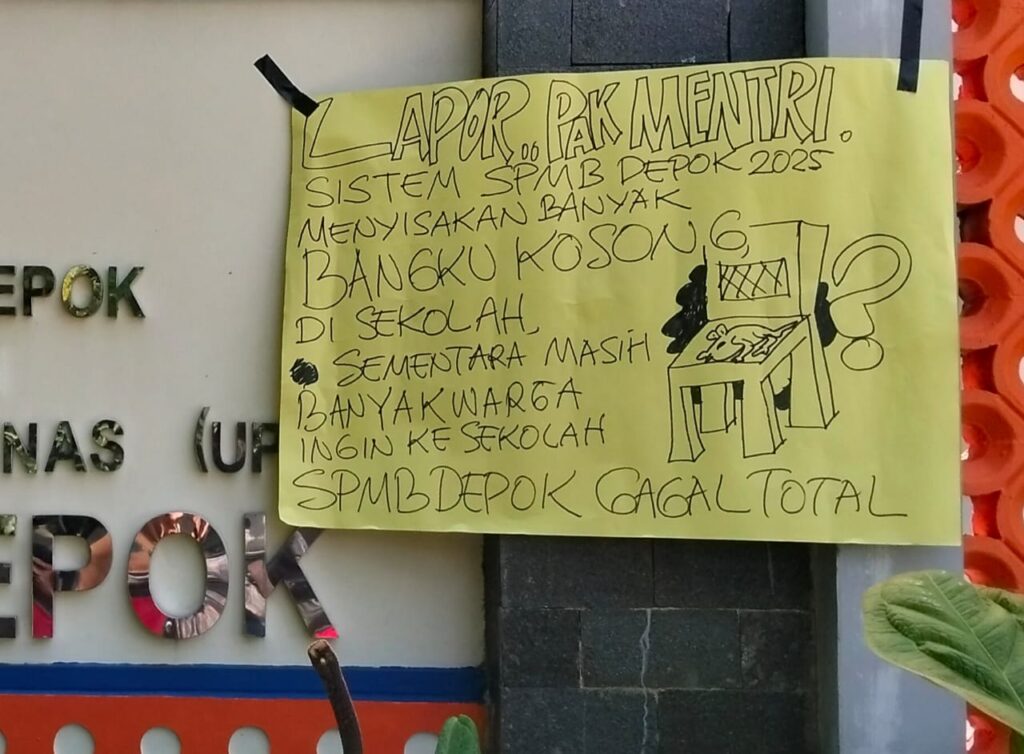 LAPOR.. PAK MENTRI.
SISTEM SPMB DEPOK 2025
MENYISAKAN BANYAK
BANGKU KOSONG,
DI SEKOLAH,
SEMENTARA MASIH
BANYAK WARGA
INGIN KE SEKOLAH
SPMB DEPOK GAGAL TOTAL
EPOK
NAS (UP
EPOK